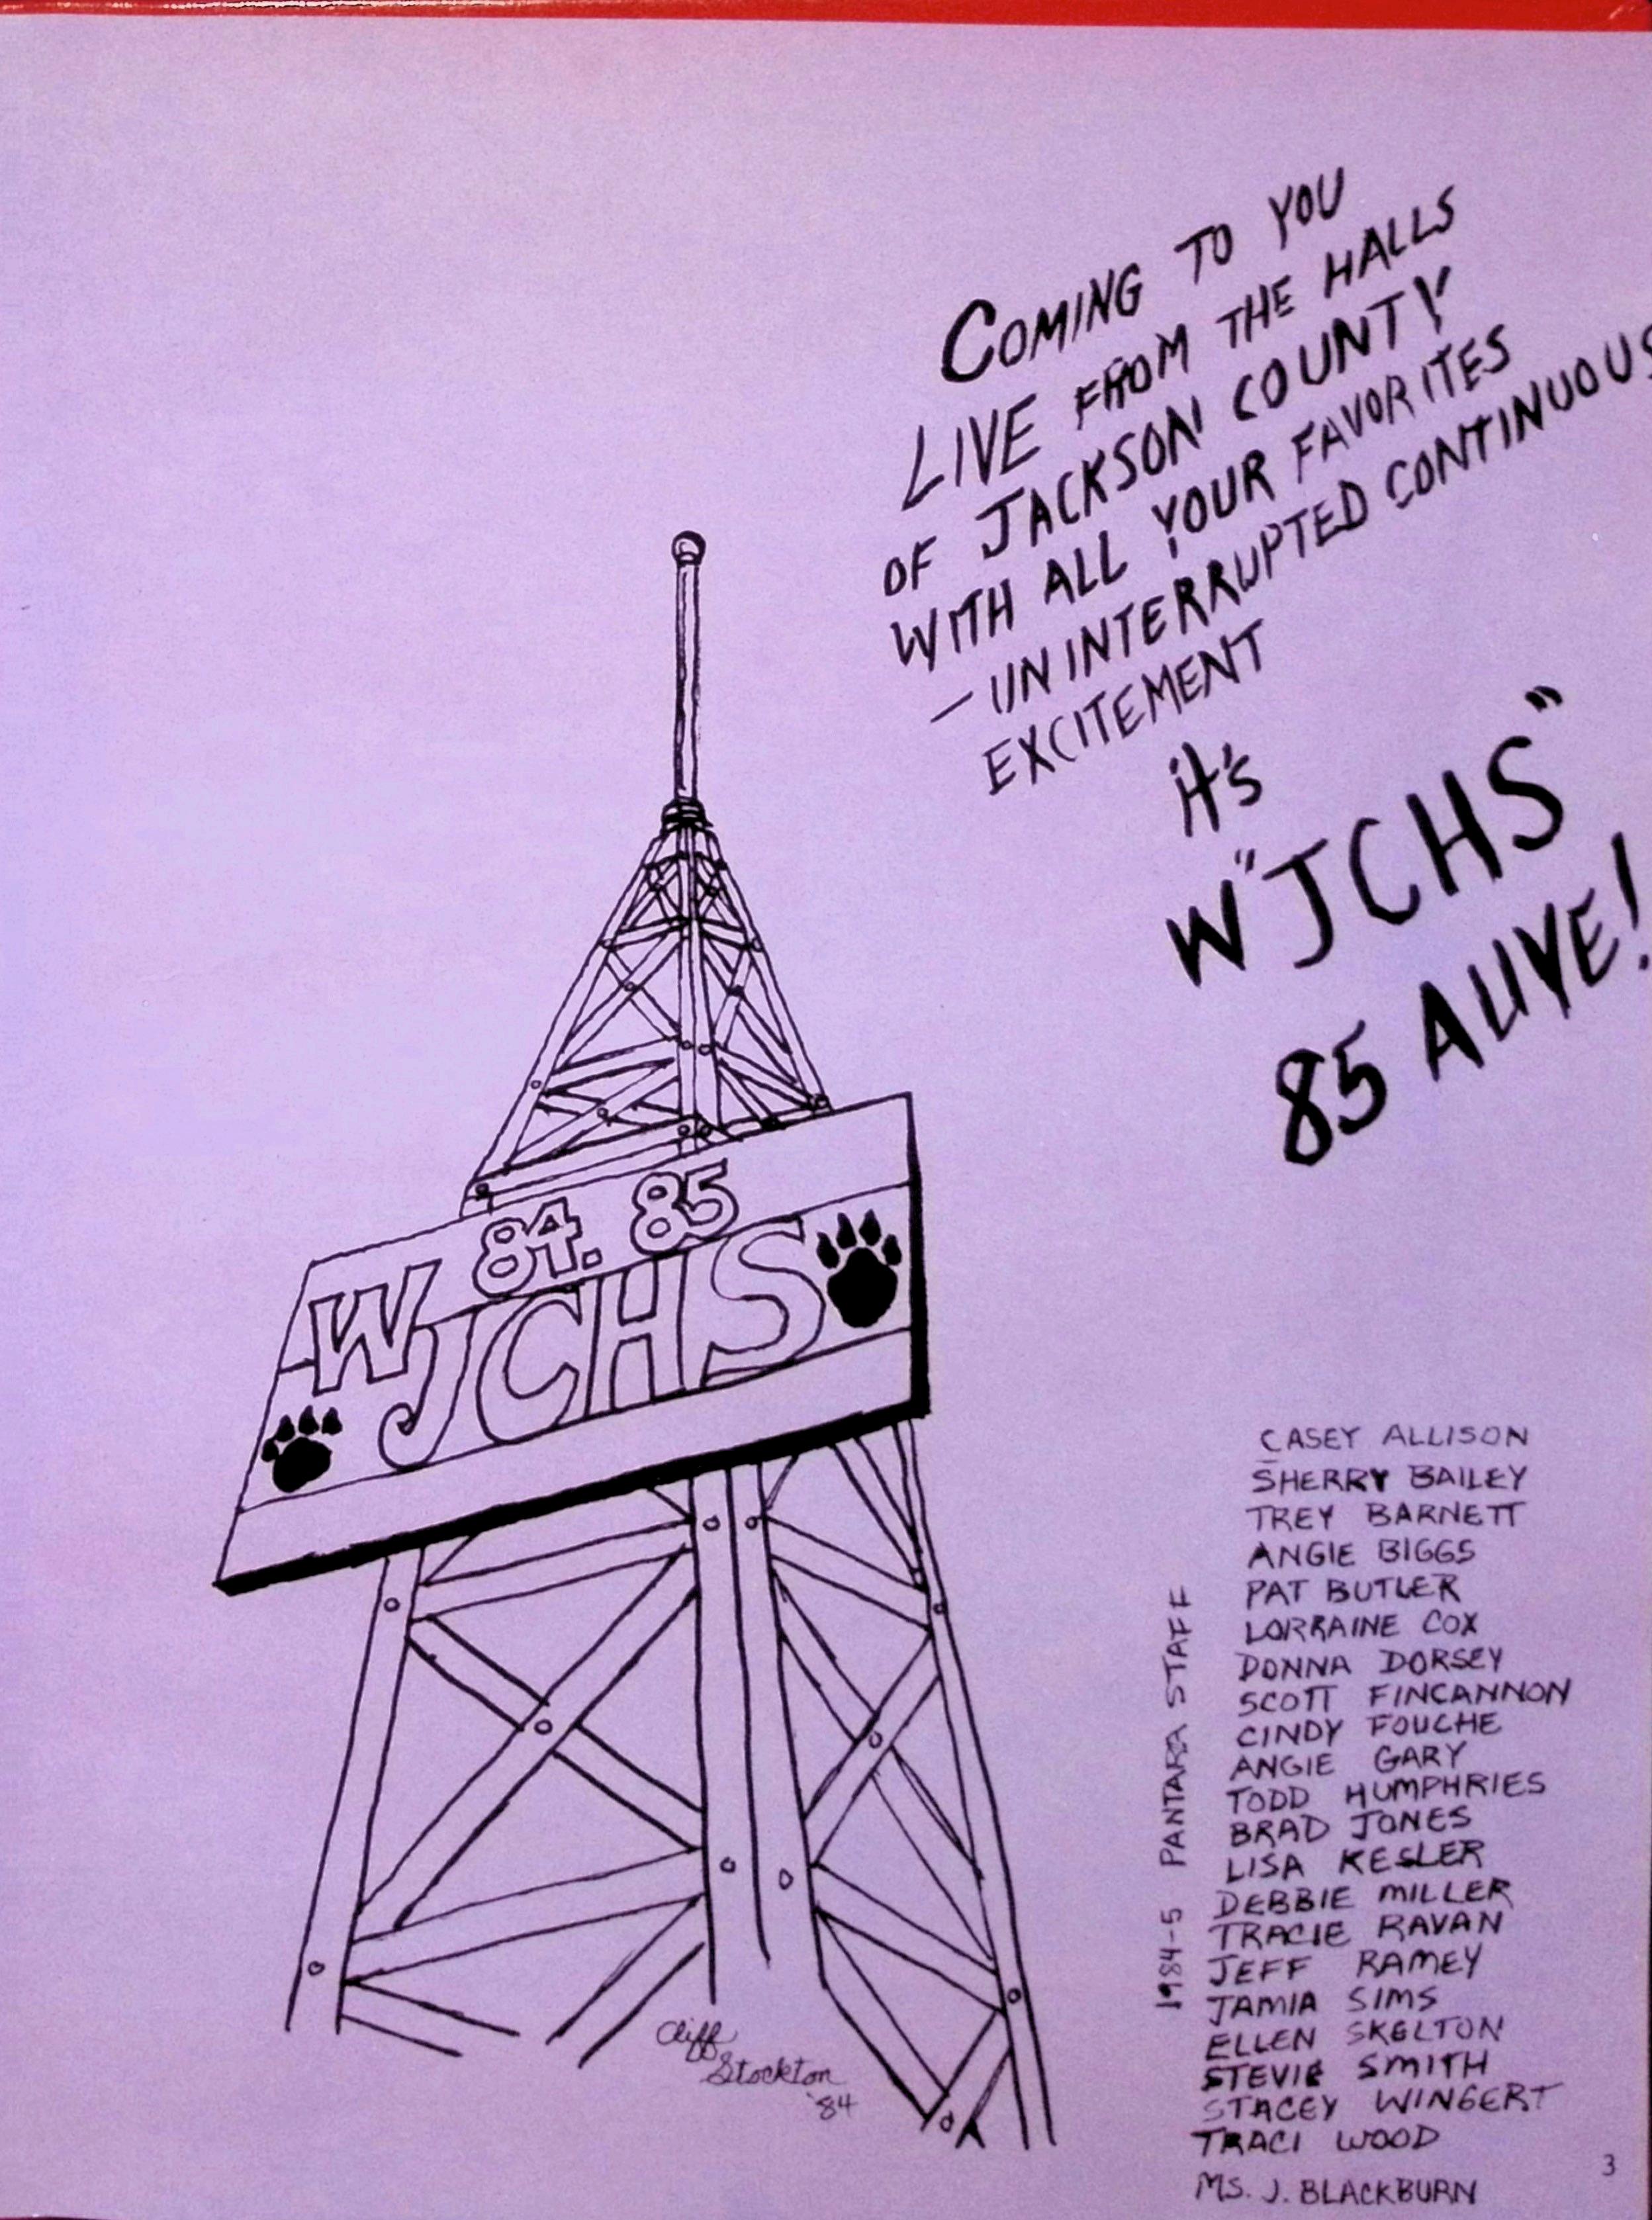 COMING TO YOU
LIVE FROM THE HALLS
OF JACKSON COUNTY
WITH ALL YOUR FAVORITES
— UNINTERRUPTED CONTINUOUS
EXCITEMENT
it's
W"JCHS"
85 ALIVE!
84. 85
WJCHS
Cliff
Stockton
'84
1984-5 PANTARA STAFF
CASEY ALLISON
SHERRY BAILEY
TREY BARNETT
ANGIE BIGGS
PAT BUTLER
LORRAINE COX
DONNA DORSEY
SCOTT FINCANNON
CINDY FOUCHE
ANGIE GARY
TODD HUMPHRIES
BRAD JONES
LISA KESLER
DEBBIE MILLER
TRACIE RAVAN
JEFF RAMEY
JAMIA SIMS
ELLEN SKELTON
STEVIE SMITH
STACEY WINGERT
TRACI WOOD
MS. J. BLACKBURN
3